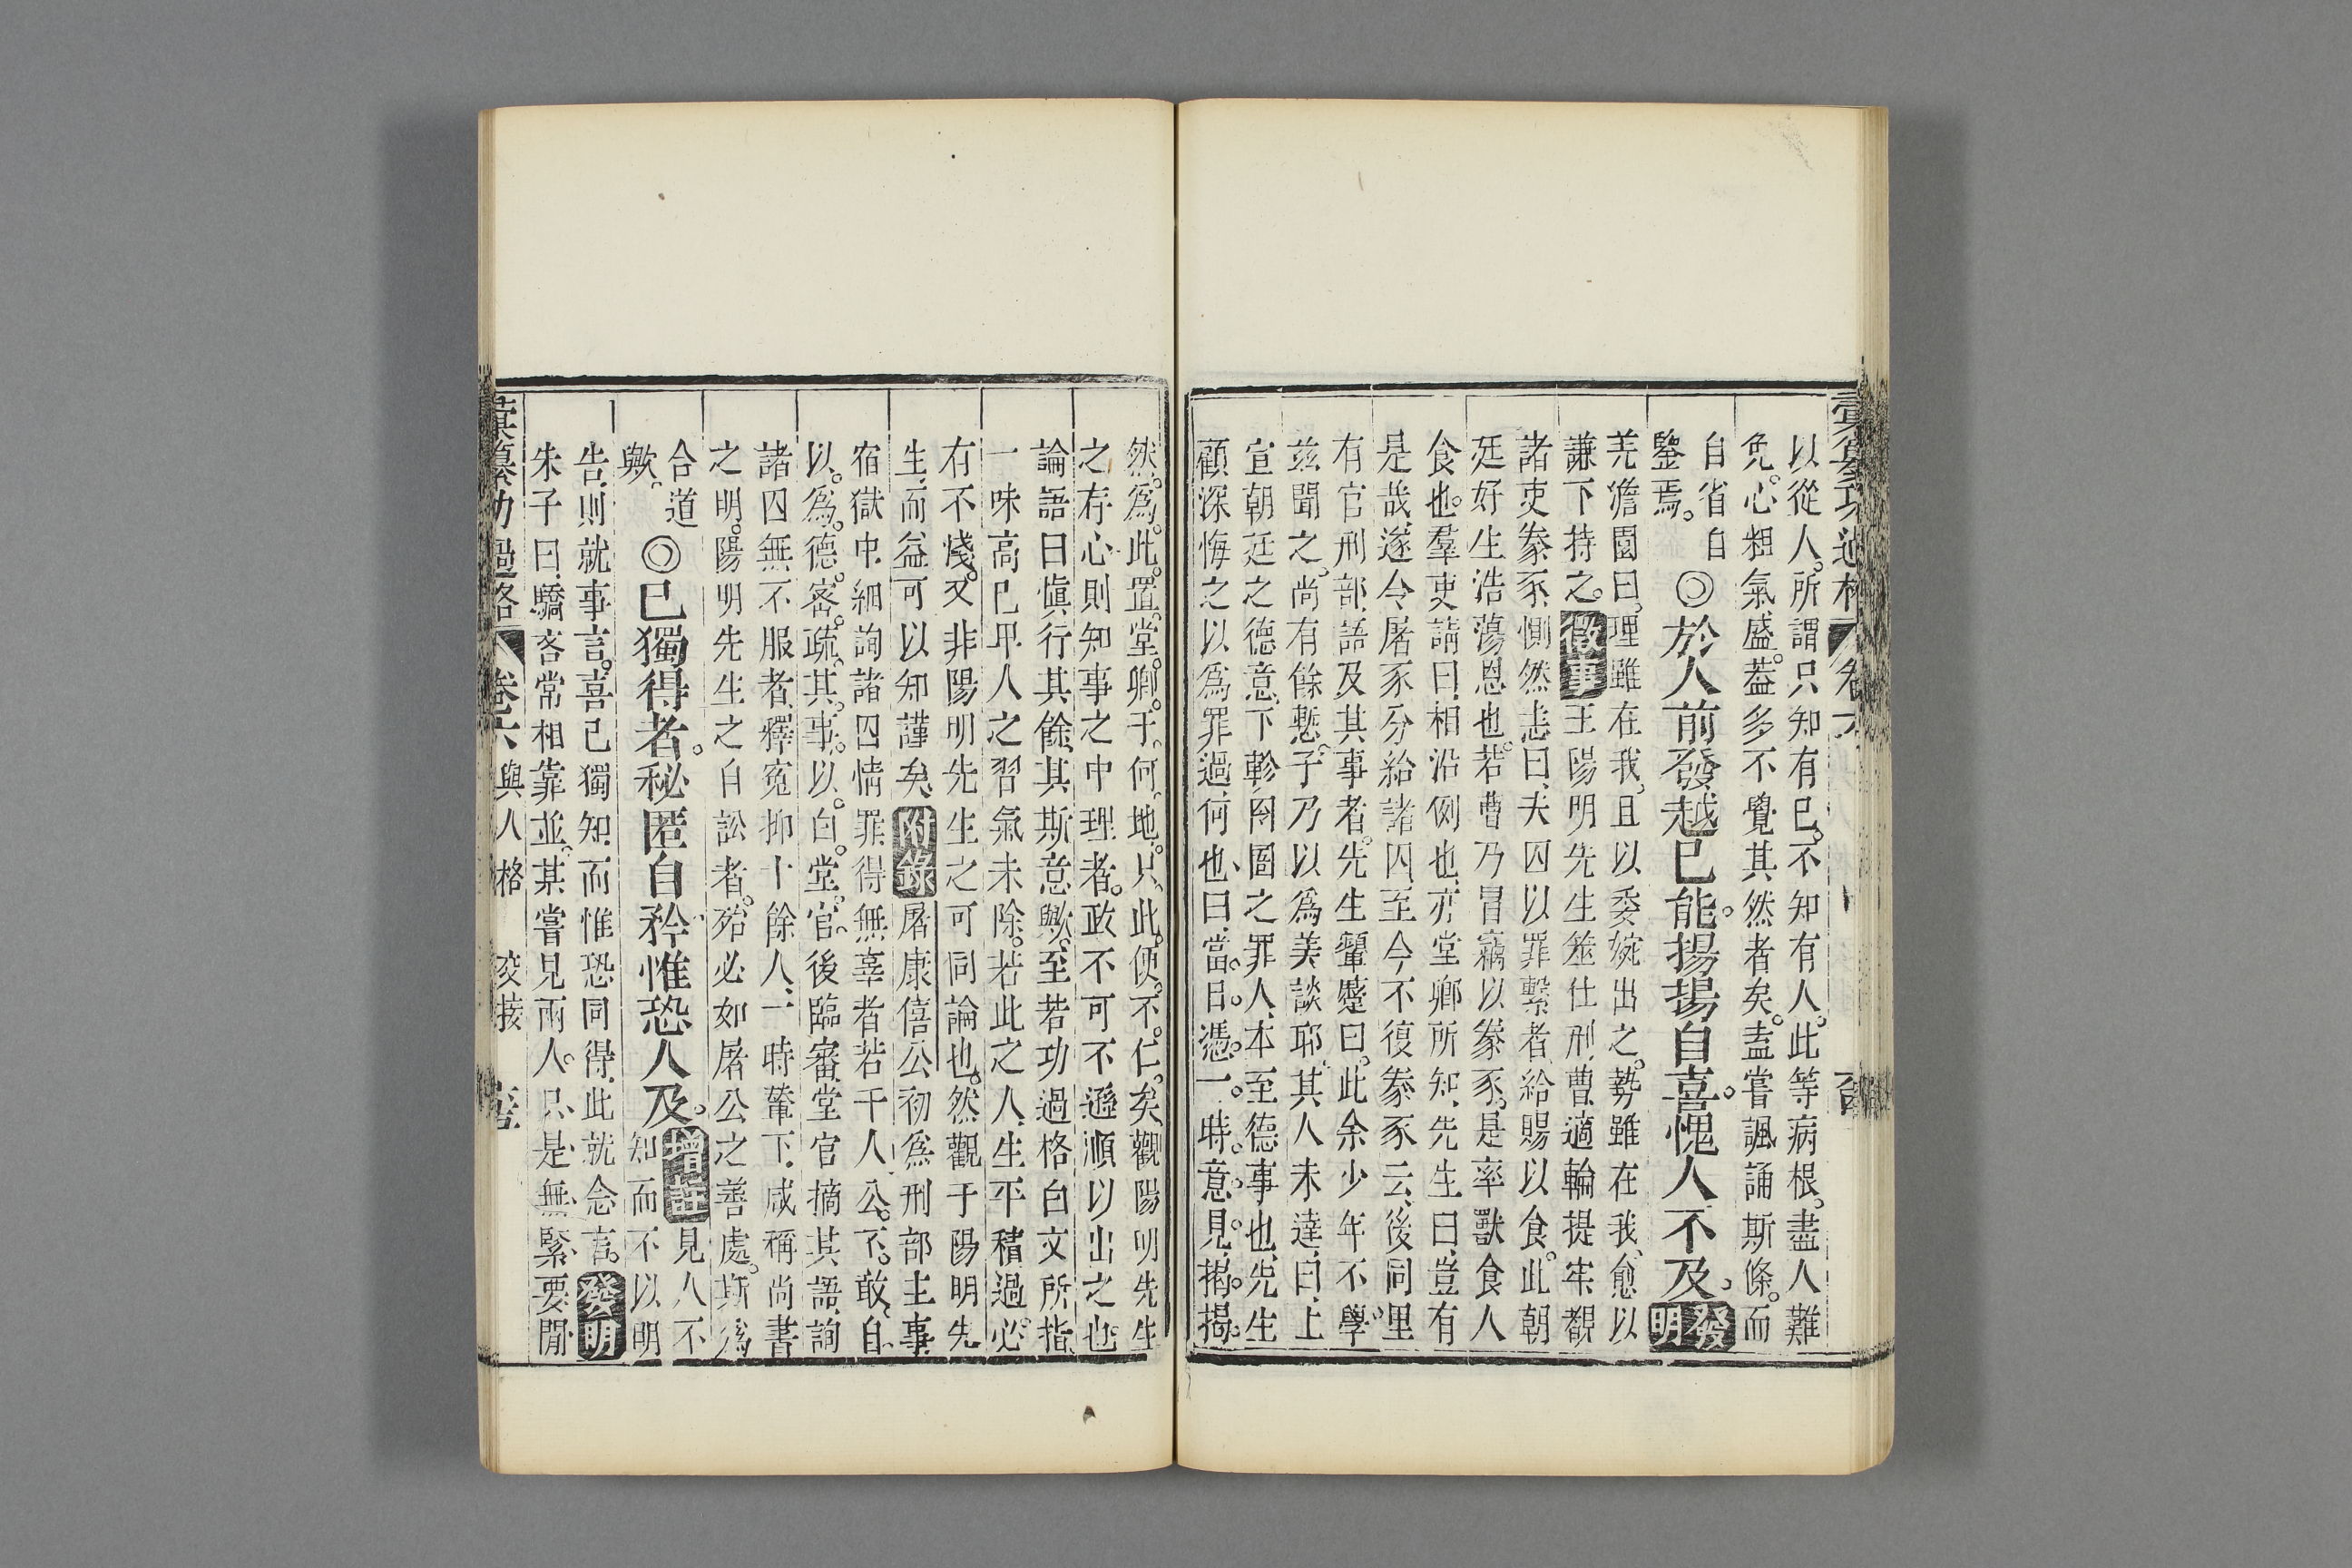 彙纂功過格 卷六
以從人。所謂只知有己。不知有人。此等病根。盡人難
免。心粗氣盛。葢多不覺其然者矣。盍嘗諷誦斯條。而
自省自
鑒焉。
◎於人前發越己能。揚揚自喜。愧人不及。發明
羌澹園曰。理雖在我。且以委婉出之。勢雖在我。愈以
謙下持之。徵事王陽明先生筮仕刑曹。適輪提牢。覩
諸吏豢豕。惻然恚曰。夫囚以罪繫者。給賜以食。此朝
廷好生浩蕩恩也。若曹乃冒竊以豢豕。是率獸食人
食也。羣吏請曰。相沿例也。亦堂卿所知。先生曰。豈有
是哉。遂令屠豕分給諸囚。至今不復豢豕云。後同里
有官刑部。語及其事者。先生顰蹙曰。此余少年不學。
兹聞之。尚有餘慙。子乃以爲美談耶。其人未達。曰。上
宣朝廷之德意。下軫囹圄之罪人。本至德事也。先生
顧深悔之。以爲罪過。何也。曰。當日。憑一時意見。揭揭
然。爲此。置堂卿于何地。只此。便不仁矣。觀陽明先生
之存心。則知事之中理者。政不可不遜順以出之也。
論語曰。愼行其餘。其斯意歟。至若功過格白文所指。
一味高己卑人之習氣未除。若此之人。生平積過。必
有不淺。又非陽明先生之可同論也。然觀于陽明先
生。而益可以知謹矣。附錄屠康僖公初爲刑部主事。
宿獄中。細詢諸囚情罪。得無辜者若干人。公不敢自
以爲德。密疏其事。以白堂官。後臨審。堂官摘其語。詢
諸囚。無不服者。釋寃抑十餘人。一時輦下。咸稱尚書
之明。陽明先生之自訟者。殆必如屠公之善處。斯爲
合道
歟。
◎己獨得者。秘匿自矜。惟恐人及。增註見人不
知而不以明
告。則就事言。喜己獨知。而惟恐同得。此就念言。發明
朱子曰。驕吝常相靠並。某嘗見兩人。只是無緊要閒
彙纂功過格 卷六 與人格 交接